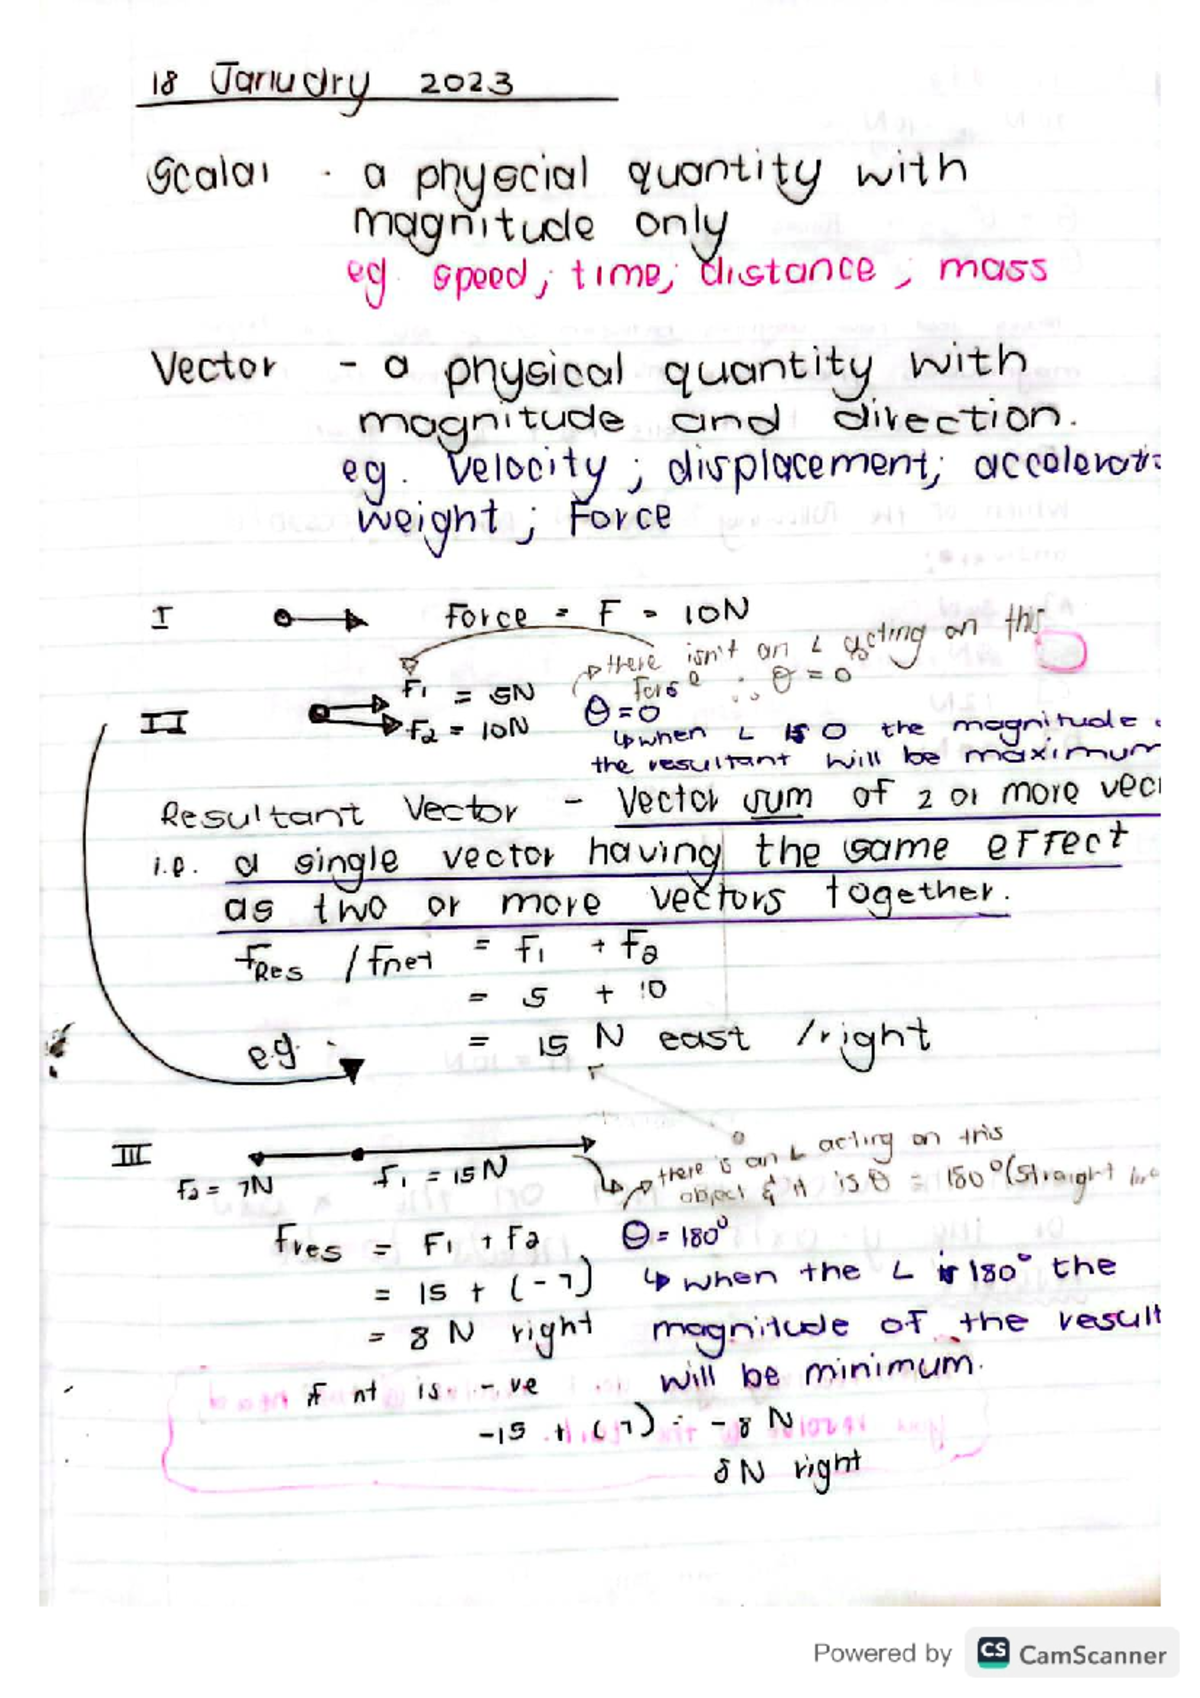 18 January 2023
Scalar - a physcial quantity with
magnitude only
eg. speed; time; distance; mass
Vector - a physical quantity with
magnitude and direction.
eg. Velocity; displacement; accelerati
weight; Force
I Force = F = 10N
there isn't an ∠ acting on this
force ∴ θ = 0
F₁ = 5N
θ = 0
II F₂ = 10N
↳ when ∠ is 0 the magnitude
the resultant will be maximum
Resultant Vector - Vector sum of 2 or more vec
i.e. a single vector having the same effect
as two or more vectors together.
FRes / Fnet = F₁ + F₂
= 5 + 10
e.g. = 15 N east /right
III
F₂ = 7N F₁ = 15N
there is an ∠ acting on this
object & it is θ = 180° (Straight
Fres = F₁ + F₂ θ = 180°
= 15 + (-7) ↳ when the ∠ is 180° the
= 8 N right magnitude of the result
will be minimum.
is -ve
-15 + (7) = -8 N
8N right
Powered by CS CamScanner